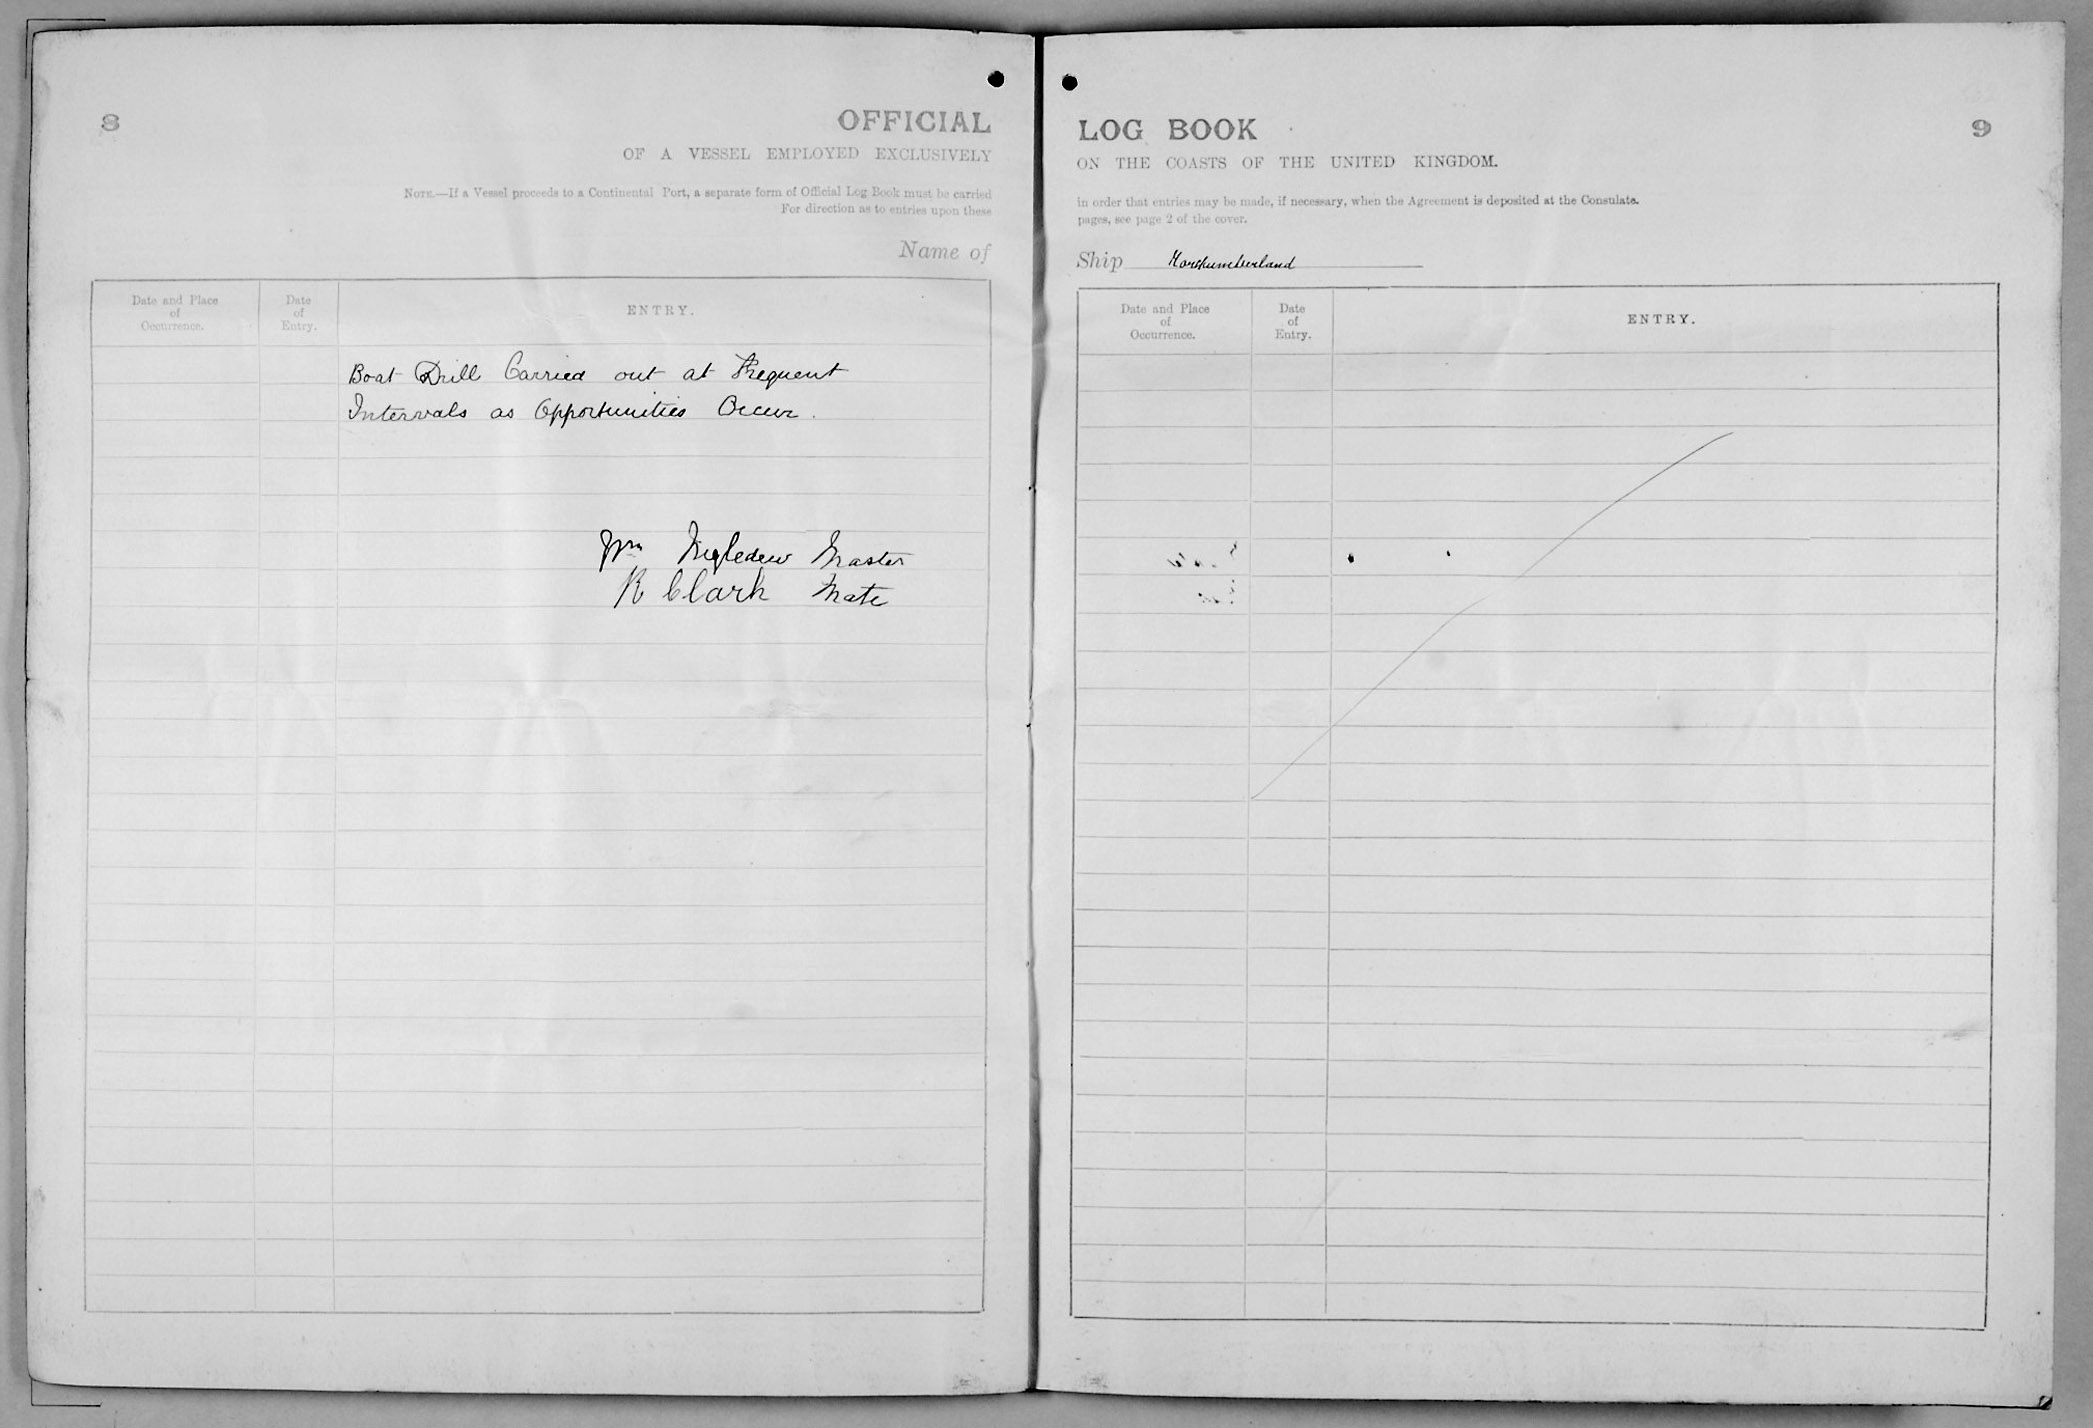 8
OFFICIAL
OF A VESSEL EMPLOYED EXCLUSIVELY
NOTE.—If a Vessel proceeds to a Continental Port, a separate form of Official Log Book must be carried
For direction as to entries upon these
Name of
Date and Place of Occurrence.
Date of Entry.
ENTRY.
Boat Drill Carried out at Frequent
Intervals as Opportunities Occur.
Wm Ingledew Master
R Clark Mate
LOG BOOK
9
ON THE COASTS OF THE UNITED KINGDOM.
in order that entries may be made, if necessary, when the Agreement is deposited at the Consulate.
pages, see page 2 of the cover.
Ship Northumberland
Date and Place of Occurrence.
Date of Entry.
ENTRY.